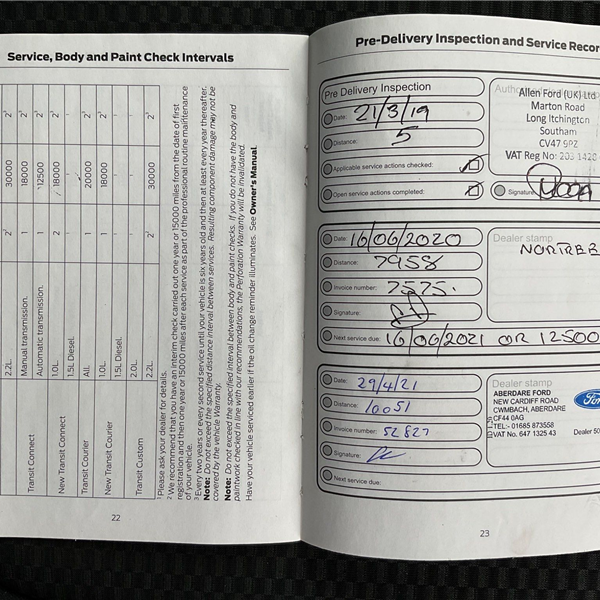 Service, Body and Paint Check Intervals
2.2L. 2² 30000 2³
Transit Connect Manual transmission. 1 18000 2³
Automatic transmission. 1 12500 2³
New Transit Connect 1.0L. 2 18000 2³
1.5L Diesel.
Transit Courier All. 1 20000 2³
New Transit Courier 1.0L. 1 18000 2³
1.5L Diesel.
Transit Custom 2.0L.
2.2L. 2² 30000 2³
¹ Please ask your dealer for details.
² We recommend that you have an interim check carried out one year or 15000 miles from the date of first
registration and then one year or 15000 miles after each service as part of the professional routine maintenance
of your vehicle.
³ Every two years or every second service until your vehicle is six years old and then at least every year thereafter.
Note: Do not exceed the specified distance interval between services. Resulting component damage may not be
covered by the vehicle Warranty.
Note: Do not exceed the specified interval between body and paint checks. If you do not have the body and
paintwork checked in line with our recommendations, the Perforation Warranty will be invalidated.
Have your vehicle serviced earlier if the oil change reminder illuminates. See Owner's Manual.
22
Pre-Delivery Inspection and Service Recor
Pre Delivery Inspection
Date: 21/3/19
Distance: 5
Applicable service actions checked:
Open service actions completed:
Allen Ford (UK) Ltd
Marton Road
Long Itchington
Southam
CV47 9PZ
VAT Reg No: 203 1420
Signature
Date: 16/06/2020
Distance: 7958
Invoice number: 7575.
Signature:
Next service due: 16/06/2021 OR 12500
Dealer stamp
Date: 29/4/21
Distance: 10051
Invoice number: 52827
Signature:
Next service due:
Dealer stamp
ABERDARE FORD
NEW CARDIFF ROAD
CWMBACH, ABERDARE
CF44 0AG
TEL:- 01685 873558
VAT No. 647 1325 43
Dealer 50
23